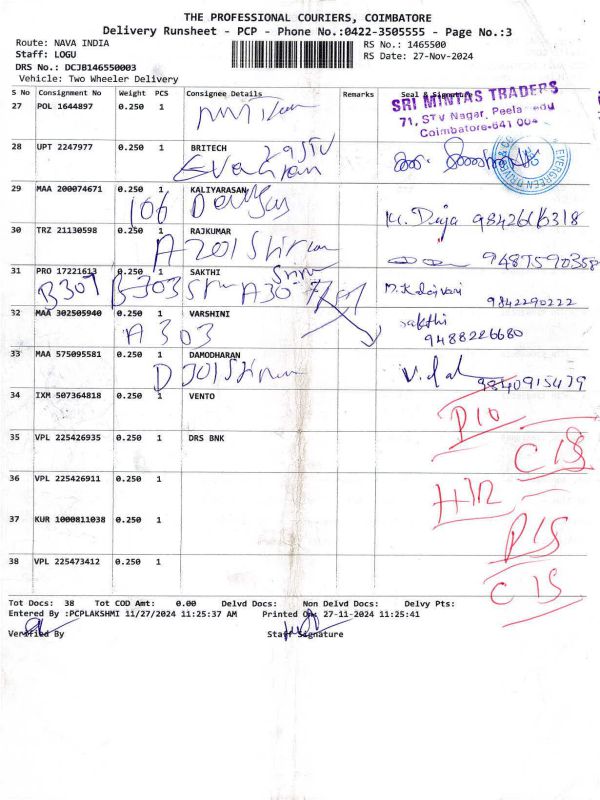 THE PROFESSIONAL COURIERS, COIMBATORE
Delivery Runsheet - PCP - Phone No.:0422-3505555 - Page No.:3
Route: NAVA INDIA
RS No.: 1465500
Staff: LOGU
RS Date: 27-Nov-2024
DRS No.: DCJB146550003
Vehicle: Two Wheeler Delivery
S No Consignment No Weight PCS Consignee Details Remarks Seal & Signature
SRI MINTAS TRADERS
71, STV Nagar, Peela edu
Coimbatore-641 004
27 POL 1644897 0.250 1
28 UPT 2247977 0.250 1 BRITECH
29 STV
EVERGREEN DRIVER & CO
29 MAA 200074671 0.250 1 KALIYARASAN
106
9842616318
30 TRZ 21130598 0.250 1 RAJKUMAR
A 201
9487590358
31 PRO 17221613 0.250 1 SAKTHI
B307 B-303 A30
9842290222
32 MAA 302505940 0.250 1 VARSHINI
A 303
sakthi
9488226680
33 MAA 575095581 0.250 1 DAMODHARAN
D 301
9840915479
34 IXM 507364818 0.250 1 VENTO
P10
35 VPL 225426935 0.250 1 DRS BNK
C1S
36 VPL 225426911 0.250 1
37 KUR 1000811038 0.250 1
P1S
38 VPL 225473412 0.250 1
C1S
Tot Docs: 38 Tot COD Amt: 0.00 Delvd Docs: Non Delvd Docs: Delvy Pts:
Entered By :PCPLAKSHMI 11/27/2024 11:25:37 AM Printed On: 27-11-2024 11:25:41
Verified By Staff Signature